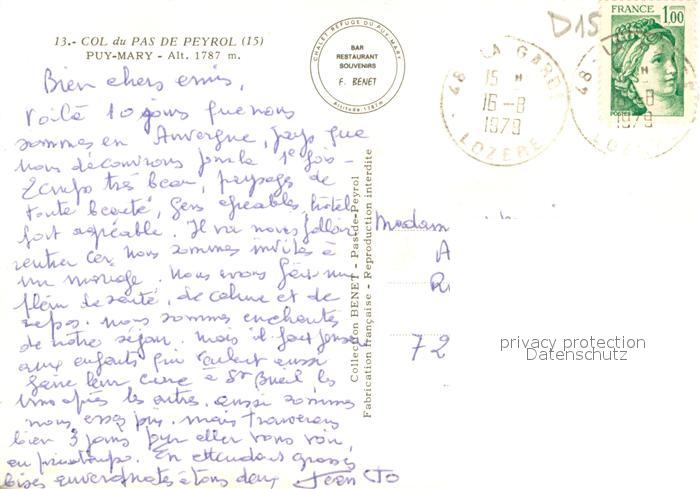 13.- COL du PAS DE PEYROL (15)
PUY-MARY - Alt. 1787 m.
CHALET-REFUGE DU PUY-MARY
BAR
RESTAURANT
SOUVENIRS
F. BENET
Altitude 1787m
D15
48 - LA GARDE
15 H
16-8
1979
LOZERE
FRANCE
1,00
POSTES
Bien chers amis,
Voilà 10 jours que nous
sommes en Auvergne, pays que
nous découvrons pour la 1e fois -
Temps très beau, paysages de
toute beauté, gens agréables, hôtel
fort agréable. Il va nous falloir
rentrer car nous sommes invités à
un mariage. Nous avons fait une
plein de santé, de calme et de
repos. nous sommes enchantés
de notre séjour. mais il faut penser
aux enfants qui veulent aussi
faire leur cure à St les
uns après les autres. aussi sommes
nous mais trouverons
bien 3 jours pour aller vous voir,
au printemps. En attendant grosses
bises auvergnates à tous deux Jean
Collection BENET - Pas-de-Peyrol
Fabrication française - Reproduction interdite
Madam
A
R
72
privacy protection
Datenschutz